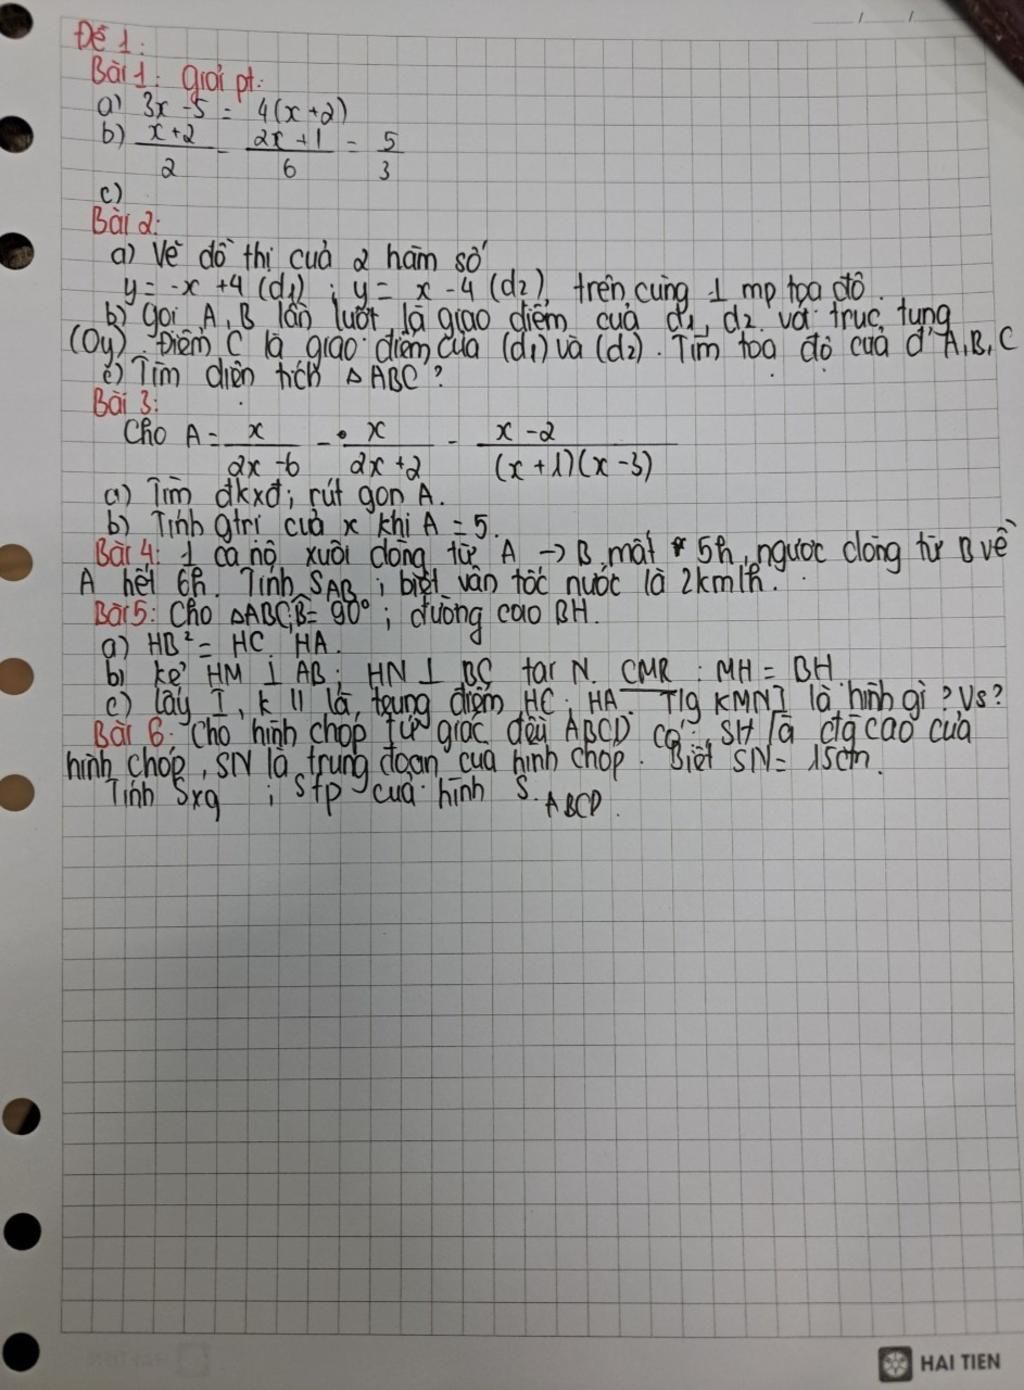 Đề 1:
Bài 1: giải pt:
a) 3x - 5 = 4(x+2)
b) \frac{x+2}{2} - \frac{2x+1}{6} = \frac{5}{3}
c)
Bài 2:
a) Vẽ đồ thị của 2 hàm số
y = -x +4 (d1) ; y = x - 4 (d2) trên cùng 1 mp tọa độ.
b) gọi A, B lần lượt là giao điểm của d1, d2 với trục tung
(Oy). Điểm C là giao điểm của (d1) và (d2). Tìm toạ độ của đ' A, B, C
c) Tìm diện tích △ABC?
Bài 3:
Cho A = \frac{x}{2x-6} - \frac{x}{2x+2} - \frac{x-2}{(x+1)(x-3)}
a) Tìm đkxđ; rút gọn A.
b) Tính gtrị của x khi A = 5.
Bài 4: 1 ca nô xuôi dòng từ A -> B mất 5h, ngược dòng từ B về
A hết 6h. Tính SAB ; biết vận tốc nước là 2km/h.
Bài 5: Cho △ABC; B̂ = 90°; đường cao BH.
a) HB² = HC. HA.
b) kẻ HM ⊥ AB; HN ⊥ BC tại N. CMR : MH = BH
c) lấy I, K ll là trung điểm HC; HA. T/g KMNI là hình gì? Vs?
Bài 6: Cho hình chóp tứ giác đều ABCD có SH là đg cao của
hình chóp, SN là trung đoạn của hình chóp. Biết SN = 15cm.
Tính Sxq ; Stp của hình S.ABCD.
HAI TIEN